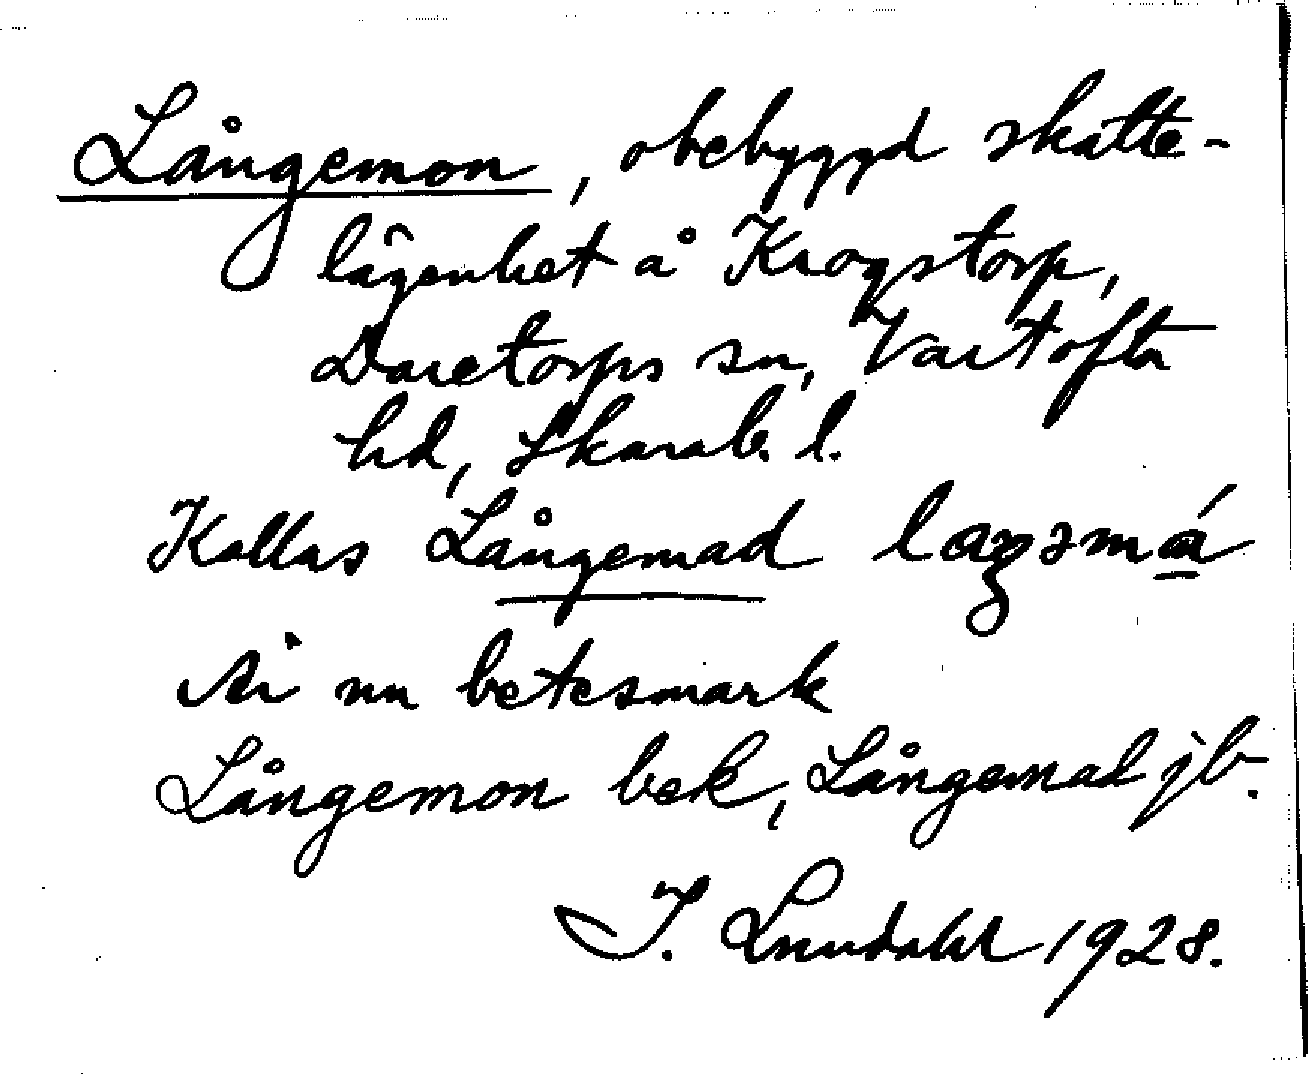 Långemon, obebyggd skatte-
lägenhet å Krogstorp,
Daretorps sn, Vartofta
hd, Skarab. l.
Kallas Långemad
Är nu betesmark
Långemon bek, Långemad jb.
I. Lundahl 1928.